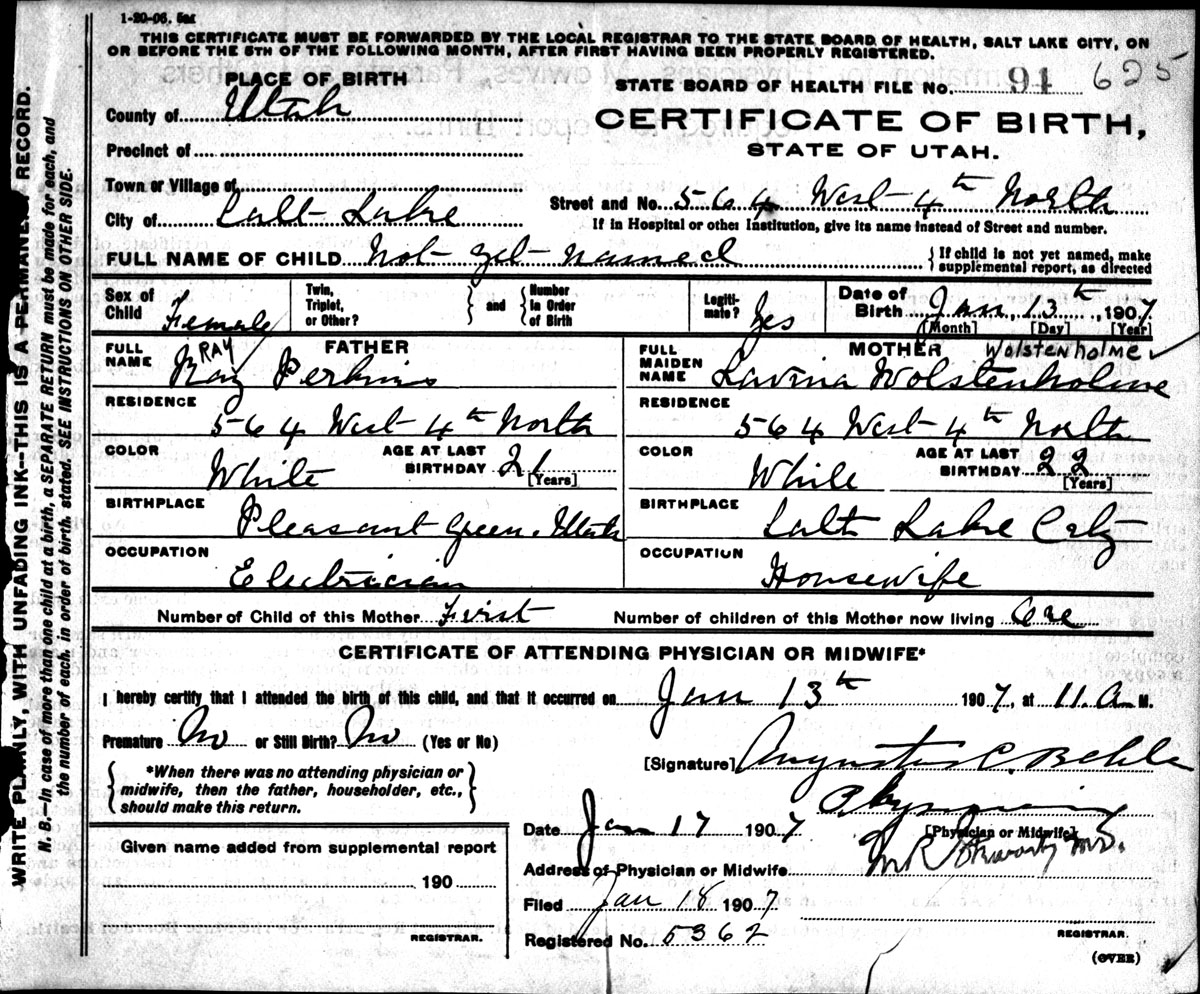 1-20-06. 5M
THIS CERTIFICATE MUST BE FORWARDED BY THE LOCAL REGISTRAR TO THE STATE BOARD OF HEALTH, SALT LAKE CITY, ON
OR BEFORE THE 5TH OF THE FOLLOWING MONTH, AFTER FIRST HAVING BEEN PROPERLY REGISTERED.
WRITE PLAINLY, WITH UNFADING INK—THIS IS A PERMANENT RECORD.
N. B.—In case of more than one child at a birth, a SEPARATE RETURN must be made for each, and
the number of each, in order of birth, stated. SEE INSTRUCTIONS ON OTHER SIDE.
PLACE OF BIRTH
STATE BOARD OF HEALTH FILE No. 94 625
County of Utah
CERTIFICATE OF BIRTH,
Precinct of
STATE OF UTAH.
Town or Village of
City of Salt Lake
Street and No. 564 West 4th North
If in Hospital or other Institution, give its name instead of Street and number.
FULL NAME OF CHILD Not yet named
{ If child is not yet named, make
supplemental report, as directed
Sex of Child Female
Twin, Triplet, or Other? } and { Number in Order of Birth
Legitimate? Yes
Date of Birth Jan, 13th, 1907
[Month] [Day] [Year]
FATHER
FULL NAME RAY
Ray Perkins
MOTHER Wolstenholme
FULL MAIDEN NAME Lavina Wolstenholme
RESIDENCE 564 West 4th North
RESIDENCE 564 West 4th North
COLOR White AGE AT LAST BIRTHDAY 21 [Years]
COLOR White AGE AT LAST BIRTHDAY 22 [Years]
BIRTHPLACE Pleasant Green. Utah
BIRTHPLACE Salt Lake City
OCCUPATION Electrician
OCCUPATION Housewife
Number of Child of this Mother First
Number of children of this Mother now living One
CERTIFICATE OF ATTENDING PHYSICIAN OR MIDWIFE*
I hereby certify that I attended the birth of this child, and that it occurred on Jan 13th 1907, at 11.a M.
Premature No or Still Birth? No (Yes or No)
[Signature] Augustus C. Behle
{ *When there was no attending physician or
midwife, then the father, householder, etc.,
should make this return. }
Physician
[Physician or Midwife]
Date Jan 17 1907
Address of Physician or Midwife
Given name added from supplemental report
190
REGISTRAR.
Filed Jan 18 1907
Registered No. 5362
REGISTRAR.
(OVER)